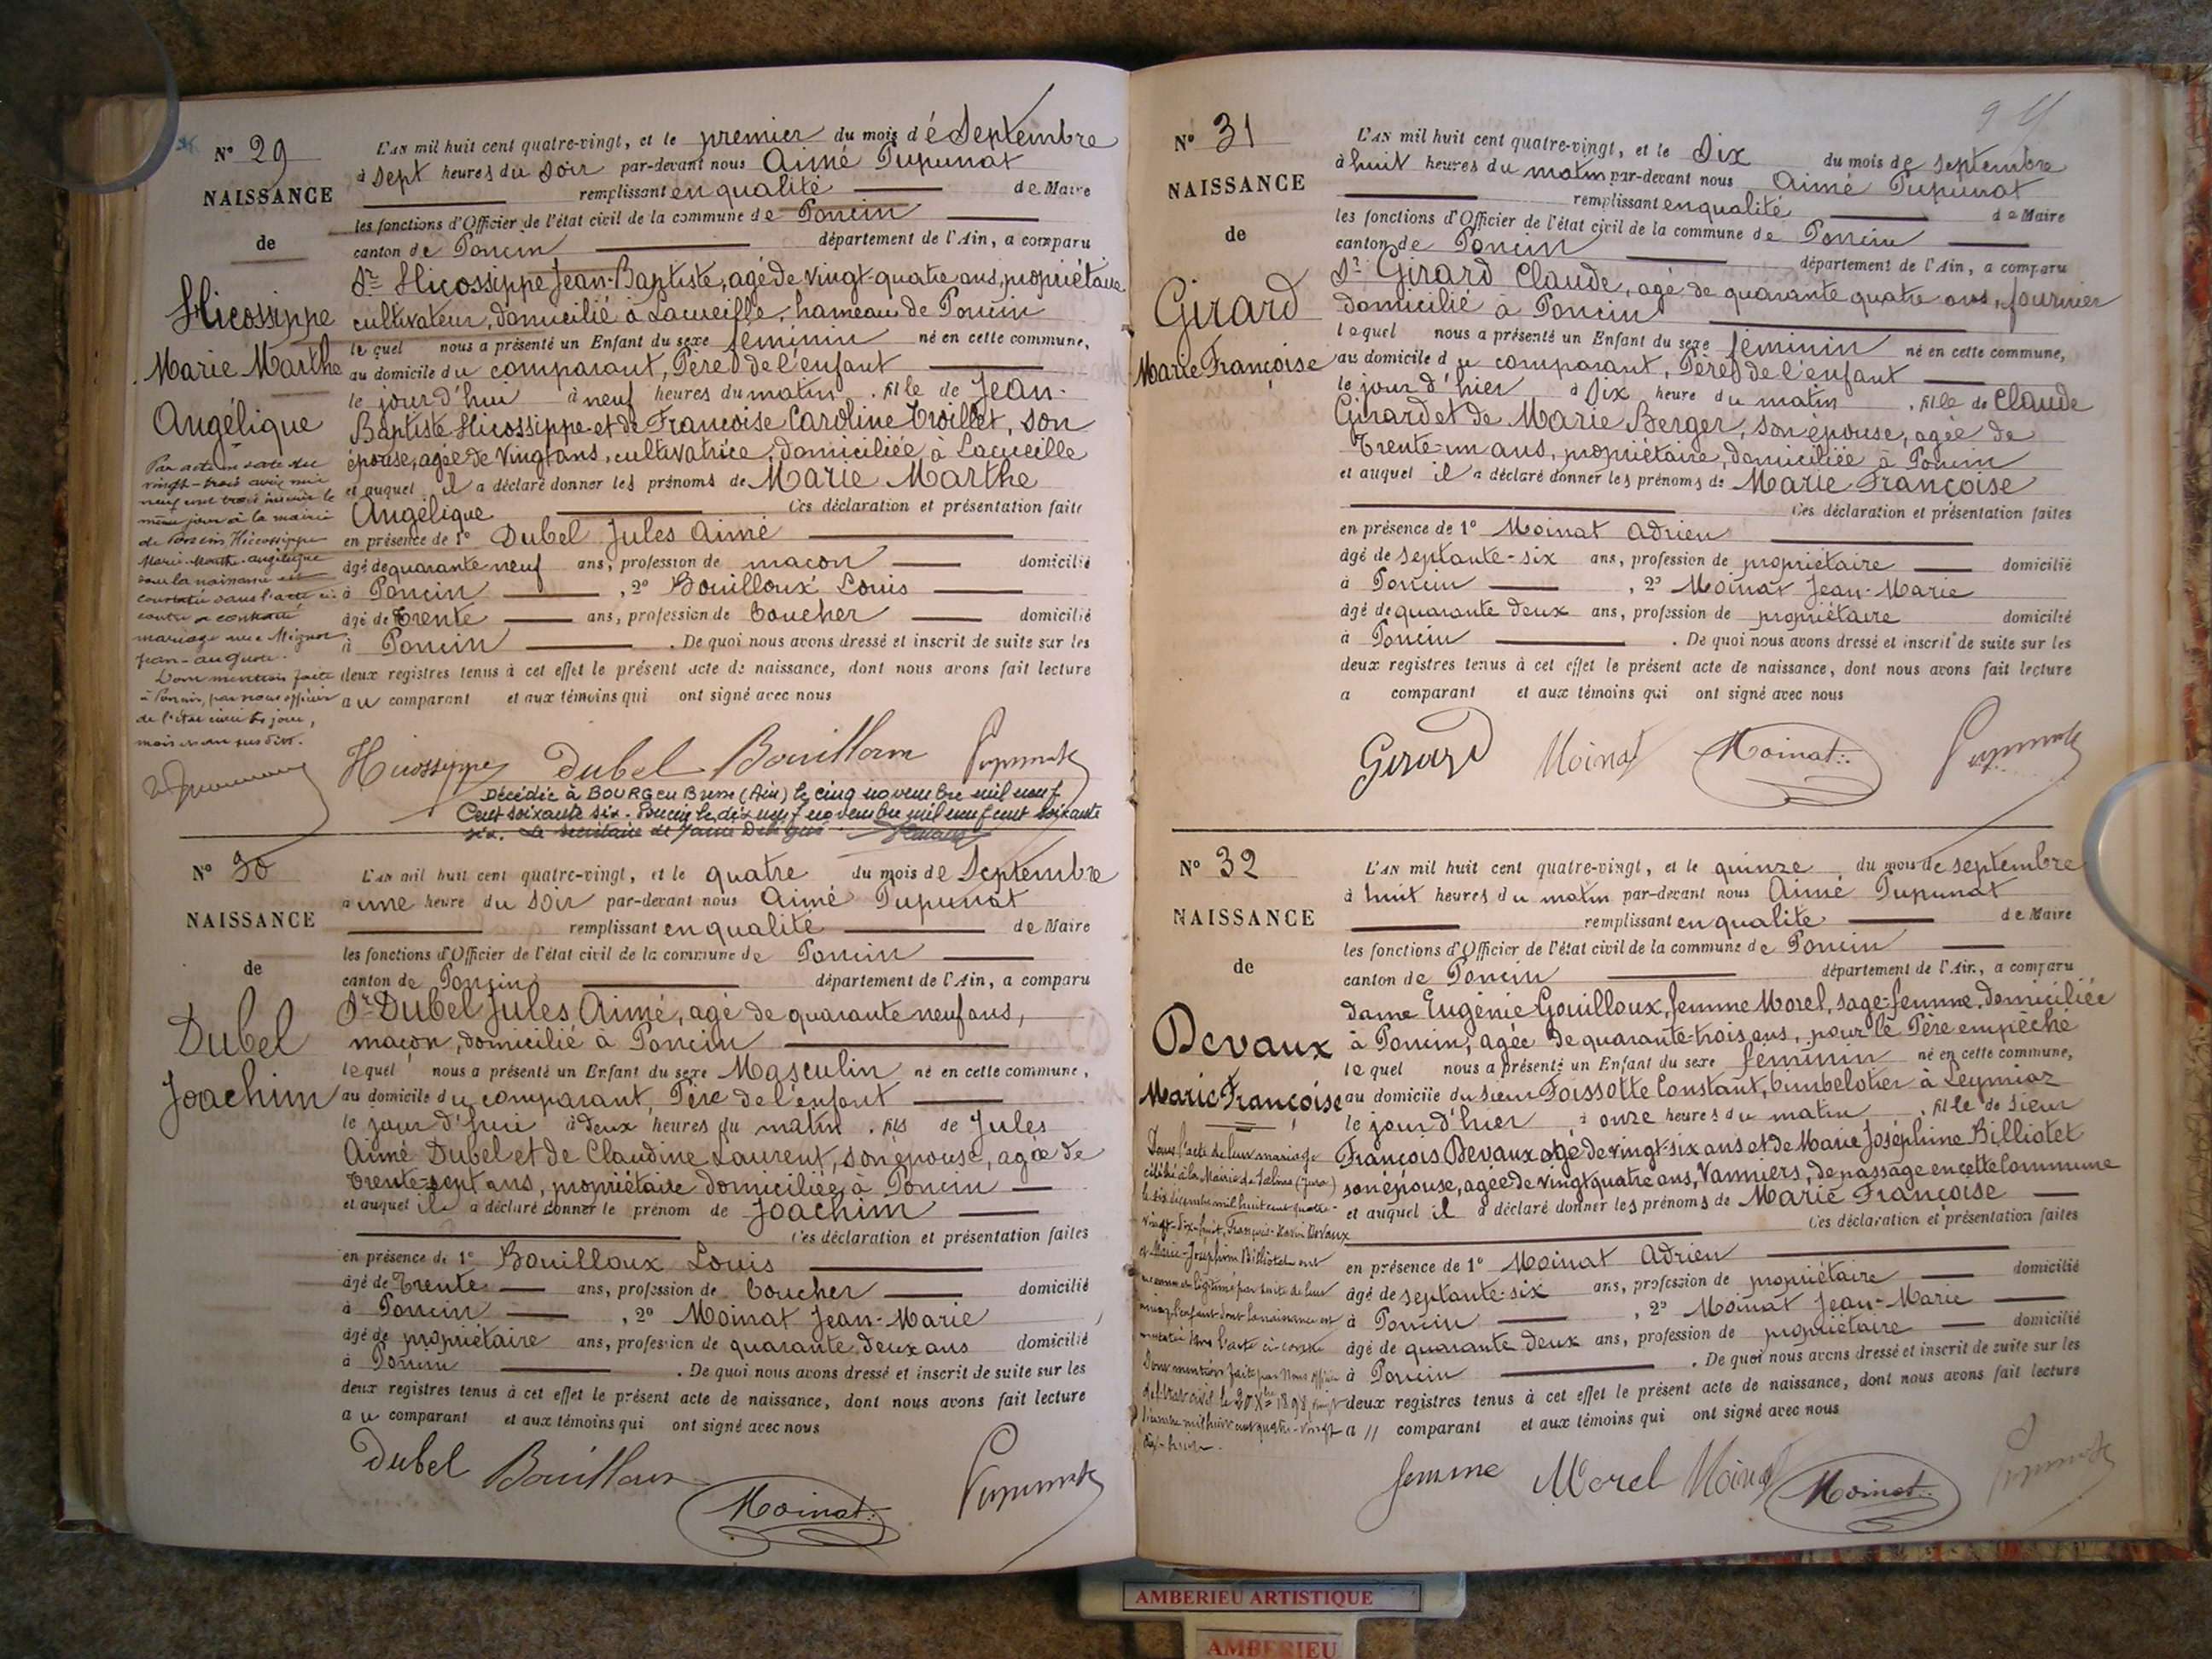 N° 29
NAISSANCE
de
Hicossippe
Marie Marthe
Angélique
Par acte en date du
vingt-trois avril mil
neuf cent trois inscrit le
même jour à la mairie
de Poncin Hicossippe
Marie-Marthe-Angélique
dont la naissance est
constatée dans l'acte ci-
contre a contracté
mariage avec Mignot
Jean-
Dont mention faite
à Poncin, par nous officier
de l'état civil les jour,
mois et an susdits.
L'AN mil huit cent quatre-vingt, et le premier du mois de Septembre
à sept heures du soir par-devant nous Aimé Pupunat
remplissant en qualité de Maire
les fonctions d'Officier de l'état civil de la commune de Poncin
canton de Poncin département de l'Ain, a comparu
Sr Hicossippe Jean-Baptiste, agé de vingt-quatre ans, propriétaire
cultivateur, domicilié à Lacueille, hameau de Poncin
lequel nous a présenté un Enfant du sexe féminin né en cette commune,
au domicile du comparant, Père de l'enfant
le jour d'hui à neuf heures du matin, fille de Jean-
Baptiste Hicossippe et de Françoise Caroline Croillet, son
épouse, agée de vingt ans, cultivatrice, domiciliée à Lacueille
et auquel il a déclaré donner les prénoms de Marie Marthe
Angélique Ces déclaration et présentation faite
en présence de 1° Dubel Jules Aimé
âgé de quarante neuf ans, profession de maçon domicilié
à Poncin, 2° Bouilloux Louis
âgé de Trente ans, profession de boucher domicilié
à Poncin. De quoi nous avons dressé et inscrit de suite sur les
deux registres tenus à cet effet le présent acte de naissance, dont nous avons fait lecture
au comparant et aux témoins qui ont signé avec nous
Hicossippe Dubel Bouilloux Pupunat
Décédée à BOURG en Bresse (Ain) le cinq novembre mil neuf
Cent soixante six. Poncin le dix neuf novembre mil neuf cent soixante
six. Le secrétaire de Mairie Délégué
N° 30
NAISSANCE
de
Dubel
Joachim
L'AN mil huit cent quatre-vingt, et le quatre du mois de Septembre
à une heure du soir par-devant nous Aimé Pupunat
remplissant en qualité de Maire
les fonctions d'Officier de l'état civil de la commune de Poncin
canton de Poncin département de l'Ain, a comparu
Sr Dubel Jules Aimé, agé de quarante neuf ans,
maçon, domicilié à Poncin
lequel nous a présenté un Enfant du sexe Masculin né en cette commune,
au domicile du comparant, Père de l'enfant
le jour d'hui à deux heures du matin, fils de Jules
Aimé Dubel et de Claudine Laurent, son épouse, agée de
Trente-sept ans, propriétaire domiciliée à Poncin
et auquel il a déclaré donner le prénom de Joachim
Ces déclaration et présentation faites
en présence de 1° Bouilloux Louis
âgé de Trente ans, profession de boucher domicilié
à Poncin, 2° Moinat Jean-Marie
âgé de propriétaire ans, profession de quarante deux ans domicilié
à Poncin. De quoi nous avons dressé et inscrit de suite sur les
deux registres tenus à cet effet le présent acte de naissance, dont nous avons fait lecture
au comparant et aux témoins qui ont signé avec nous
Dubel Bouilloux Pupunat
Moinat
N° 31
NAISSANCE
de
Girard
Marie Françoise
L'AN mil huit cent quatre-vingt, et le Six du mois de septembre
à huit heures du matin par-devant nous Aimé Pupunat
remplissant en qualité de Maire
les fonctions d'Officier de l'état civil de la commune de Poncin
canton de Poncin département de l'Ain, a comparu
Sr Girard Claude, agé de quarante quatre ans, fournier
domicilié à Poncin
lequel nous a présenté un Enfant du sexe féminin né en cette commune,
au domicile du comparant, Père de l'enfant
le jour d'hier à six heure du matin, fille de Claude
Girard et de Marie Berger, son épouse, agée de
Trente-un ans, propriétaire, domiciliée à Poncin
et auquel il a déclaré donner les prénoms de Marie Françoise
Ces déclaration et présentation faites
en présence de 1° Moinat Adrien
âgé de septante-six ans, profession de propriétaire domicilié
à Poncin, 2° Moinat Jean-Marie
âgé de quarante deux ans, profession de propriétaire domicilié
à Poncin. De quoi nous avons dressé et inscrit de suite sur les
deux registres tenus à cet effet le présent acte de naissance, dont nous avons fait lecture
a comparant et aux témoins qui ont signé avec nous
Girard Moinat Moinat Pupunat
N° 32
NAISSANCE
de
Devaux
Marie Françoise
Dans l'acte de leur mariage
célébré à la Mairie de Salins (Jura)
le six décembre mil huit cent quatre-
vingt-dix-huit, François-Xavier Devaux
et Marie-Joséphine Billiotet ont
reconnu et légitimé par suite de leur
mariage l'enfant dont la naissance est
constatée dans l'acte ci-contre
Dont mention faite par Nous Officier
de l'état civil le 20 Xbre 1898,
décembre mil huit cent quatre-vingt
dix-huit.
L'AN mil huit cent quatre-vingt, et le quinze du mois de septembre
à huit heures du matin par-devant nous Aimé Pupunat
remplissant en qualité de Maire
les fonctions d'Officier de l'état civil de la commune de Poncin
canton de Poncin département de l'Ain, a comparu
dame Eugénie Gouilloux, femme Morel, sage-femme, domiciliée
à Poncin, agée de quarante-trois ans, pour le Père empêché
lequel nous a présenté un Enfant du sexe féminin né en cette commune,
au domicile du sieur Foissotte Constant, bimbelotier à Leymiaz
le jour d'hier à onze heures du matin, fille de sieur
François Devaux agé de vingt-six ans et de Marie Joséphine Billiotet
son épouse, agée de vingt quatre ans, Vanniers, de passage en cette Commune
et auquel il a déclaré donner les prénoms de Marie Françoise
Ces déclaration et présentation faites
en présence de 1° Moinat Adrien
âgé de septante-six ans, profession de propriétaire domicilié
à Poncin, 2° Moinat Jean-Marie
âgé de quarante deux ans, profession de propriétaire domicilié
à Poncin. De quoi nous avons dressé et inscrit de suite sur les
deux registres tenus à cet effet le présent acte de naissance, dont nous avons fait lecture
a // comparant et aux témoins qui ont signé avec nous
femme Morel Moinat Moinat Pupunat
AMBERIEU ARTISTIQUE
AMBERIEU